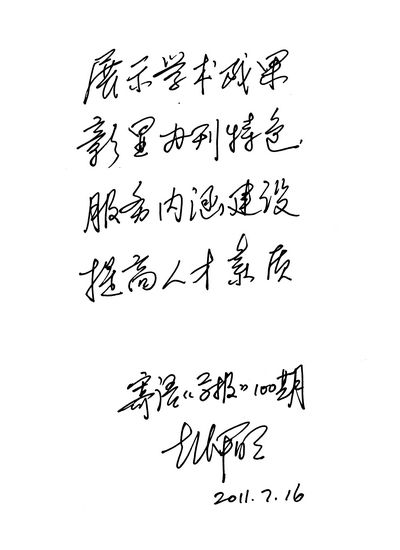 展示学术成果
彰显办刊特色
服务内涵建设
提高人才素质
寄语《学报》100期
2011.7.16